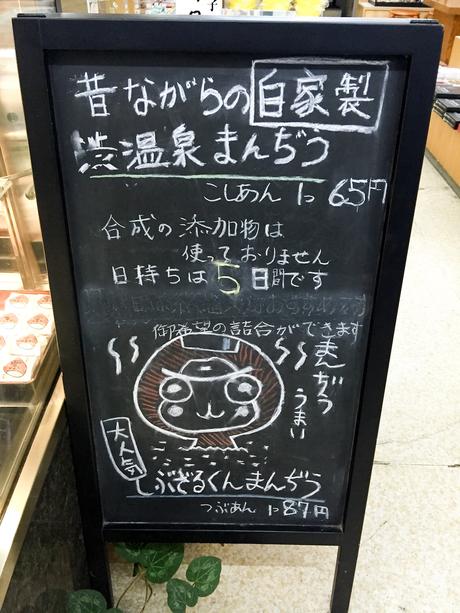 昔ながらの自家製
渋温泉まんぢう
こしあん 1つ 65円
合成の添加物は
使っておりません
日持ちは5日間です
御希望の詰合ができます
まんぢう
うまい
大人気
しぶざるくんまんぢう
つぶあん 1つ 87円